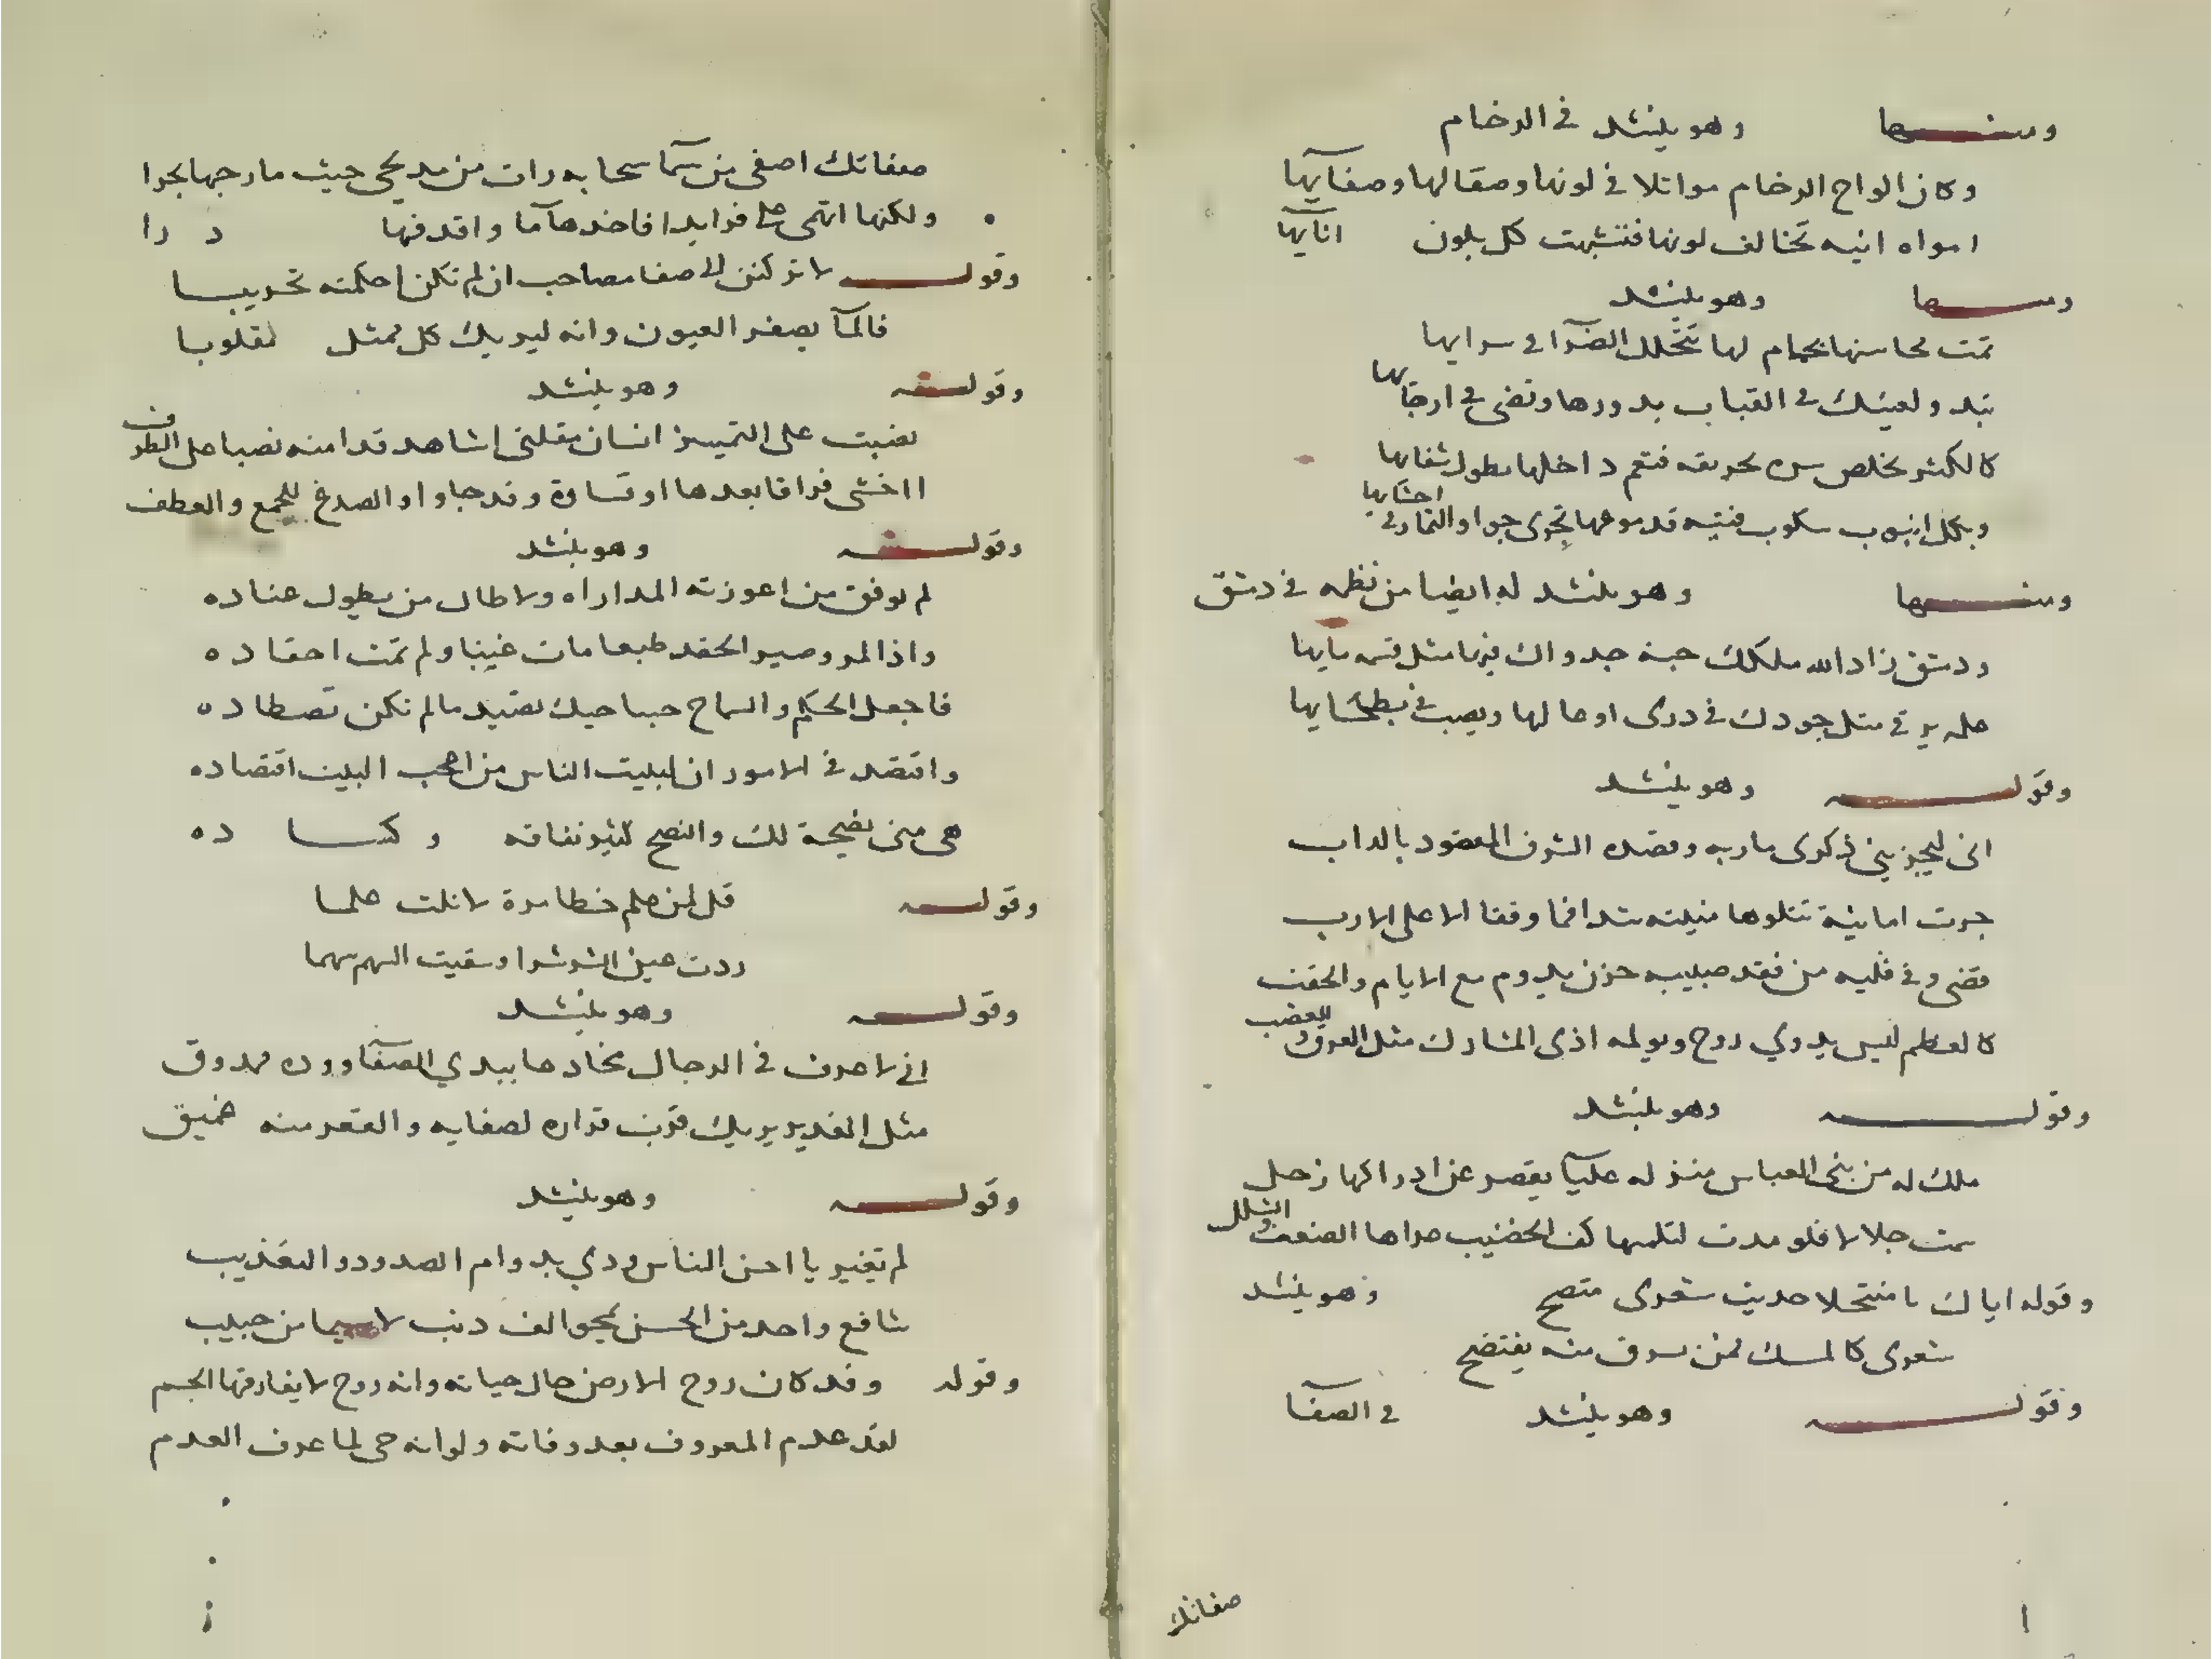 ومنها وهو ينشد في الرخام
وكان الواح الرخام مواثلا في لونها وصقالها وصفآيها
امواه انيه تخالف لونها فتشبهت كل بلون انآيها
ومنها وهو ينشد
تمت محاسنها بحمام لها يتخلل الضرآ في سرايها
تبدو لعينك في القباب بدورها وتضى في ارجايها
كالكثر يخلص بحريقه فتعم داخلها بطول شفايها
وبكل انبوب سكوب فتيه قد تجرى جوا والنار في احشايها
ومنها وهو ينشد له ايضا من نظمه في دمشق
ودمشق زاد الله ملكك جنة جدواك فيها مثل قسمه مايها
في مثل جودك في ذرى اوصالها ويصب في بطحايها
وقوله وهو ينشد
انى ليحزننى ذكرى ماربه وقصده الشرف المعقود بالداب
جرت امانية تتلوها منيته وقفا الا على الارب
قضى وفي قلبه من فقد حبيبه حزن يدوم مع الايام والحقب
كالعظم ليس بذي روح ويولمه اذى المشارك مثل العرق والعصب
وقوله وهو ينشد
ملك له من بنى العباس منزله عليآ يقصر عن ادراكها زحل
سمت جلالا فلو مدت لتلمسها كف الخضيب عراها الضعف والشلل
وقوله اياك يا منتحلا حديث شعرى متصح وهو ينشد
شعرى كالمسك لمن سرق منه يفتضح
وقوله وهو ينشد في الصفآ
صفاتك
صفاتك اصفى من سمآ سحابه رات من مديحى حيث مارجها بحرا
ولكنها اتهمى على فرايدا فاخذها مآ واقذفها د را
وقوله لا تركنن الى صفا مصاحب ان لم تكن احكمته تجريبا
فالمآ يصفر العيون وانه ليريك كل ممثل مقلوبا
وقوله وهو ينشد
نصبت على التمييز انسان مقلتى اشاهد قدا منه نصبا على الظرف
ااخشى فراقا بعدها او قساوة وقد جاواو الصدغ للجمع والعطف
وقوله وهو ينشد
لم يوفق من اعوزته المداراه ولا طال من يطول عناده
واذا المرو صير الحقد طبعا مات غيبا ولم تمت احقاده
فاجعل الحكم والسماح حباحيك تصيد مالم تكن تصطاده
واقتصد في الامور ان لبليت الناس من اعجب البيت اقتصاده
هى منى نصيحة لك والنصح كثير نفاقه وكسا ده
وقوله قل لمن علم خطا مرة لا نلت علما
زدت عين الشر شرا وسقيت السهم سهما
وقوله وهو ينشد
انى لاعرف في الرجال مخادعا يبدي الصفآ ووده ممذوق
مثل الغدير يريك قرب قراره لصفايه والقعر منه عميق
وقوله وهو ينشد
لم تغير يا احسن الناس ودي بدوام الصدود والتعذيب
شافع واحد من الحسن يمحو الف ذنب لا سيما من حبيب
وقوله وقد كان روح الارض حال حياته وانه روح لا يفارقها الجسم
لقد عدم المعروف بعد وفاته ولو انه حى لما عرف العدم